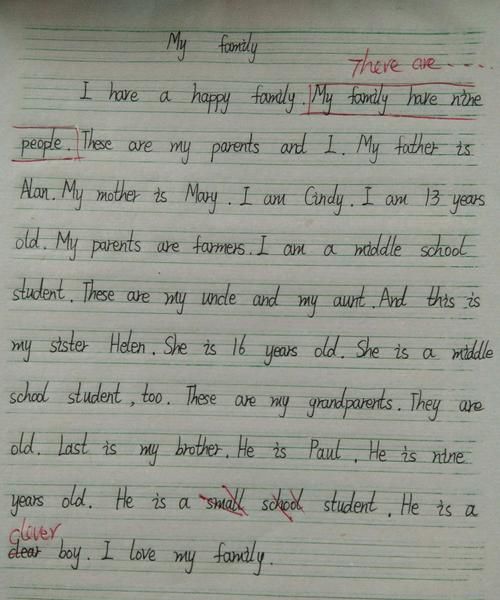 My family
There are ....
I have a happy family. My family have nine
people. These are my parents and I. My father is
Alan. My mother is Mary. I am Cindy. I am 13 years
old. My parents are farmers. I am a middle school
student. These are my uncle and my aunt. And this is
my sister Helen. She is 16 years old. She is a middle
school student, too. These are my grandparents. They are
old. Last is my brother. He is Paul. He is nine
years old. He is a small school student. He is a
cliver
clear boy. I love my family.